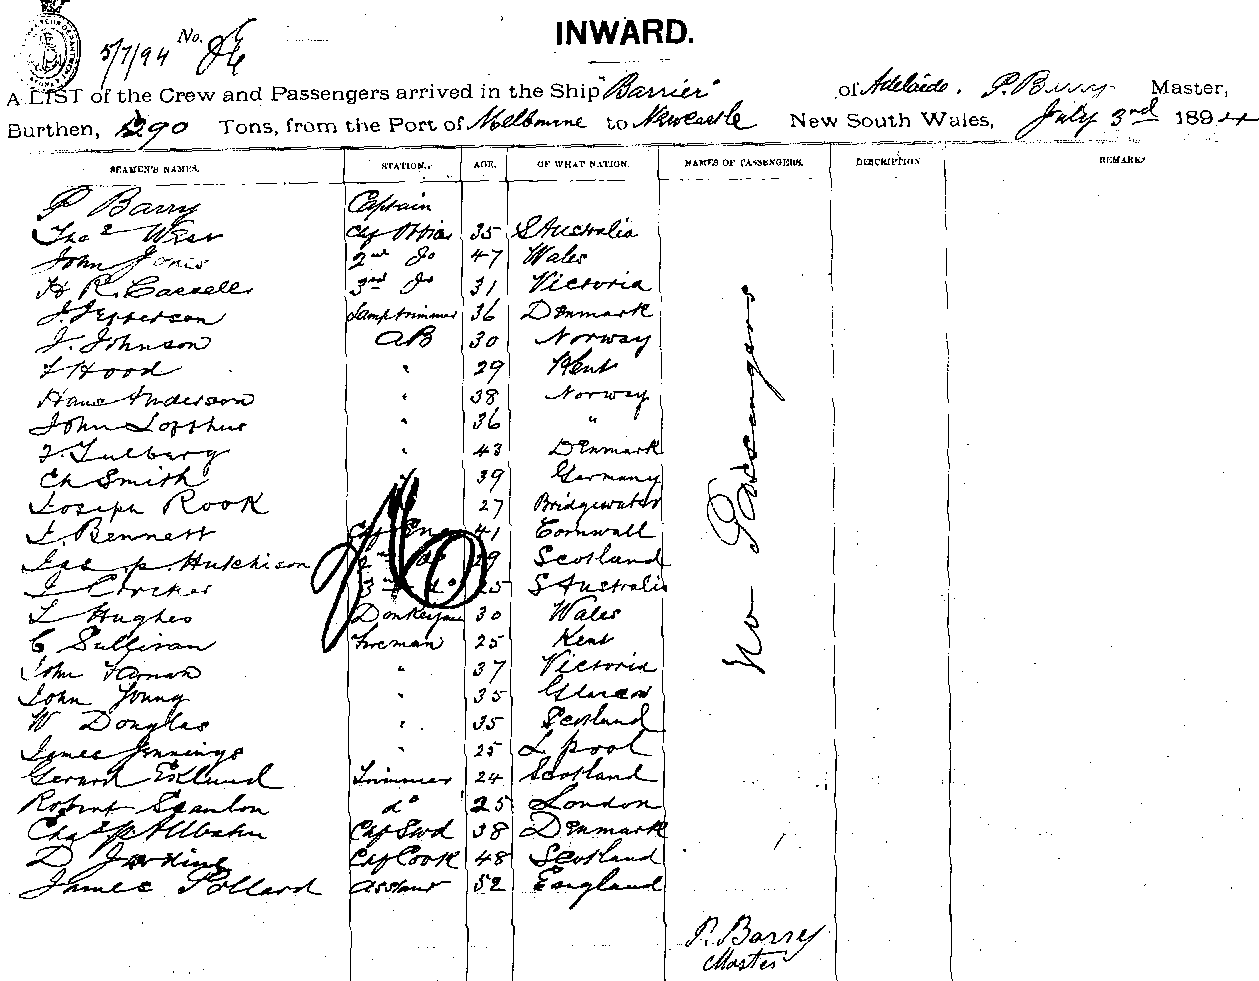 INWARD.
5/7/94 No.
A LIST of the Crew and Passengers arrived in the Ship "Barrier" of Adelaide. P. Barry Master,
Burthen, 290 Tons, from the Port of Melbourne to Newcastle New South Wales, July 3rd 1894
SEAMEN'S NAMES. STATION. AGE. OF WHAT NATION. NAMES OF PASSENGERS. DESCRIPTION REMARKS
P Barry Captain
Thos West 35 S Australia
John Jones 2nd do 47 Wales
H R. Cassells 3rd do 31 Victoria
J. Jefferson Lamptrimmer 36 Denmark
J. Johnson AB 30 Norway
Hood " 29 Kent
Hans Anderson " 38 Norway
John Lofthus " 36 "
Tulberg " 43 Denmark
Ch Smith " 39 Germany
Joseph Rook 27 Bridgewater
Bennett 41 Cornwall
Hutchison 2nd do 29 Scotland
Crocker 3rd do 25 S Australia
Hughes Donkeyman 30 Wales
C Sullivan Fireman 25 Kent
John " 37 Victoria
John Young " 35
W Douglas " 35 Scotland
James Jennings " 25 L.pool
Gerard Eklund Trimmer 24 Scotland
Robert Scanlon do 25 London
Chas Chf Swd 38 Denmark
D Jenkins Chf Cook 48 Scotland
James Pollard Assant 52 England
No Passengers
P. Barry
Master